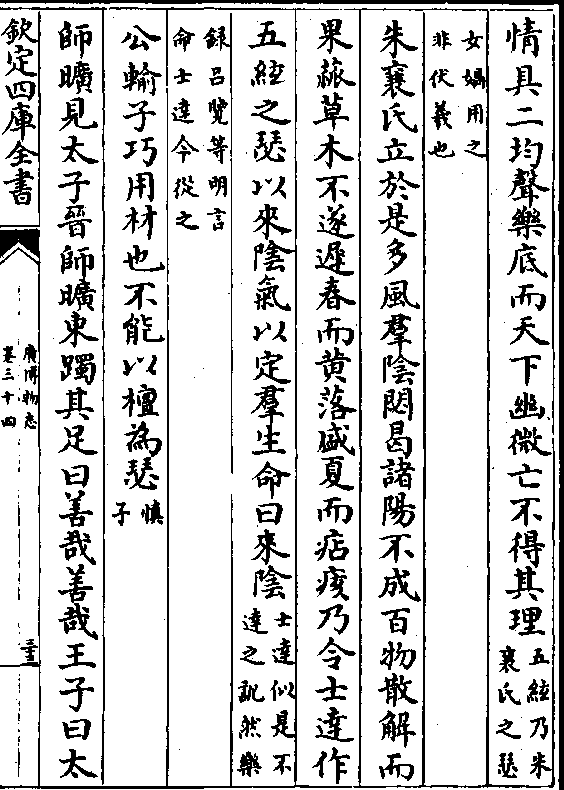 情具二均聲樂底而天下幽微亡不得其理五絃乃朱襄氏之瑟
女媧用之非伏羲也
朱襄氏立於是多風羣陰閎曷諸陽不成百物散解而
果蓏草木不遂遲春而黄落盛夏而痁痎乃令士達作
五絃之瑟以來陰氣以定羣生命曰來陰士達似是不達之訛然樂
録呂覽等明言命士達今從之
公輸子巧用材也不能以檀為瑟慎子
師曠見太子晉師曠束躅其足曰善哉善哉王子曰太
欽定四庫全書
廣博物志
卷三十四